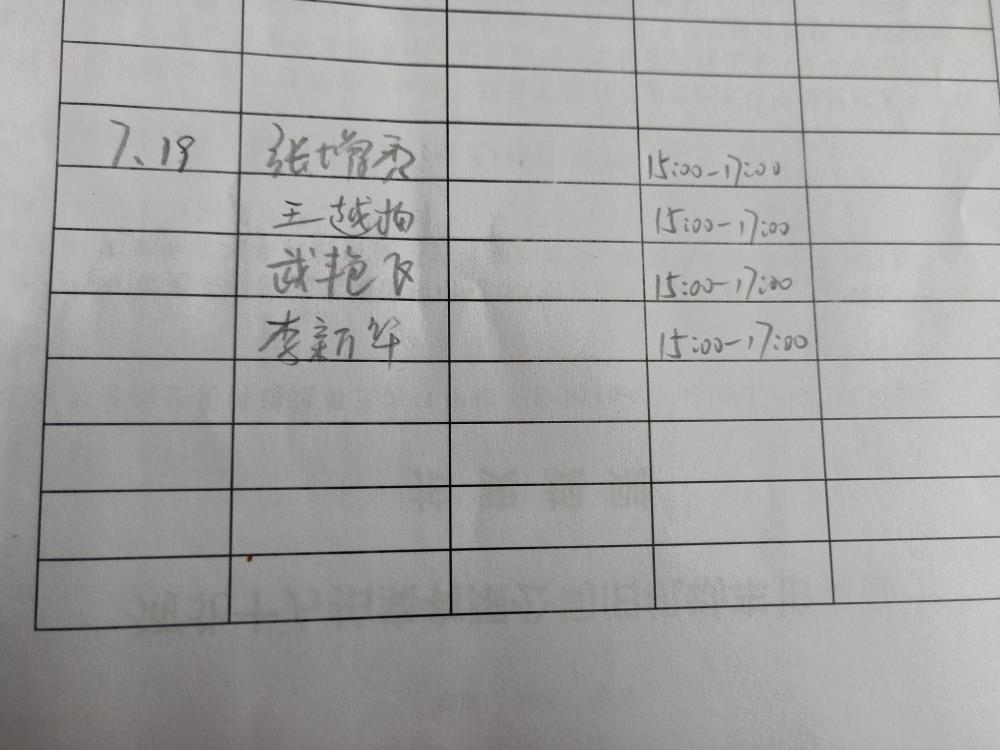 7.19 张增秀 15:00-17:00
王越 15:00-17:00
武艳飞 15:00-17:00
李新年 15:00-17:00